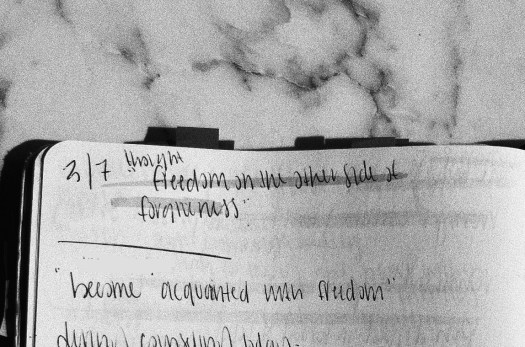 3/7 thought
"freedom on the other side of
forgiveness"
"become acquainted with freedom"
during